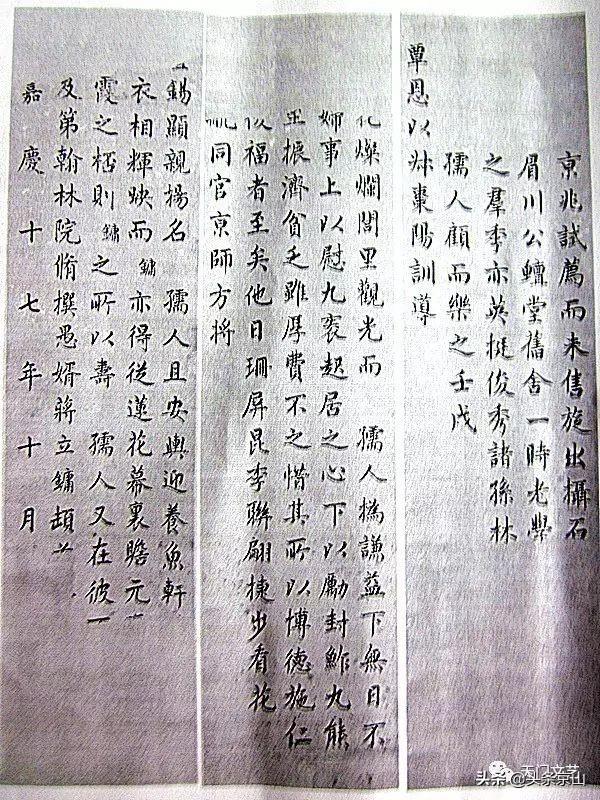 京兆試薦而未售旋出攝石
眉川公鱣堂舊舍一時老學
之羣季亦英挺俊秀諸孫林
孺人顧而樂之壬戌
覃恩以敕棗陽訓導
燦爛閭里觀光而 孺人撝謙益下無日不
婦事上以慰九袠起居之心下以勵封鮓九熊
振濟貧乏雖厚費不之惜其所以博德施仁
福者至矣他日珊屏昆季聯翩捷步看花
同官京師方將
錫顯親揚名 孺人且安輿迎養魚軒
衣相輝映而鏞亦得從蓮花幕裏瞻元
霞之栝則鏞之所以壽 孺人又在彼
及第翰林院脩撰愚婿蔣立鏞頓
嘉慶十七年十月
天门文艺
头条@京山